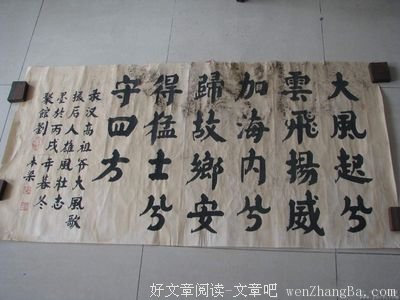 大風起兮
雲飛揚威
加海内兮
歸故鄉安
得猛士兮
守四方
录汉高祖爷大风歌
后人雄風壮志
墨於丙戌年暮冬
館劉
好文章阅读-文章吧 wenZhangBa.com